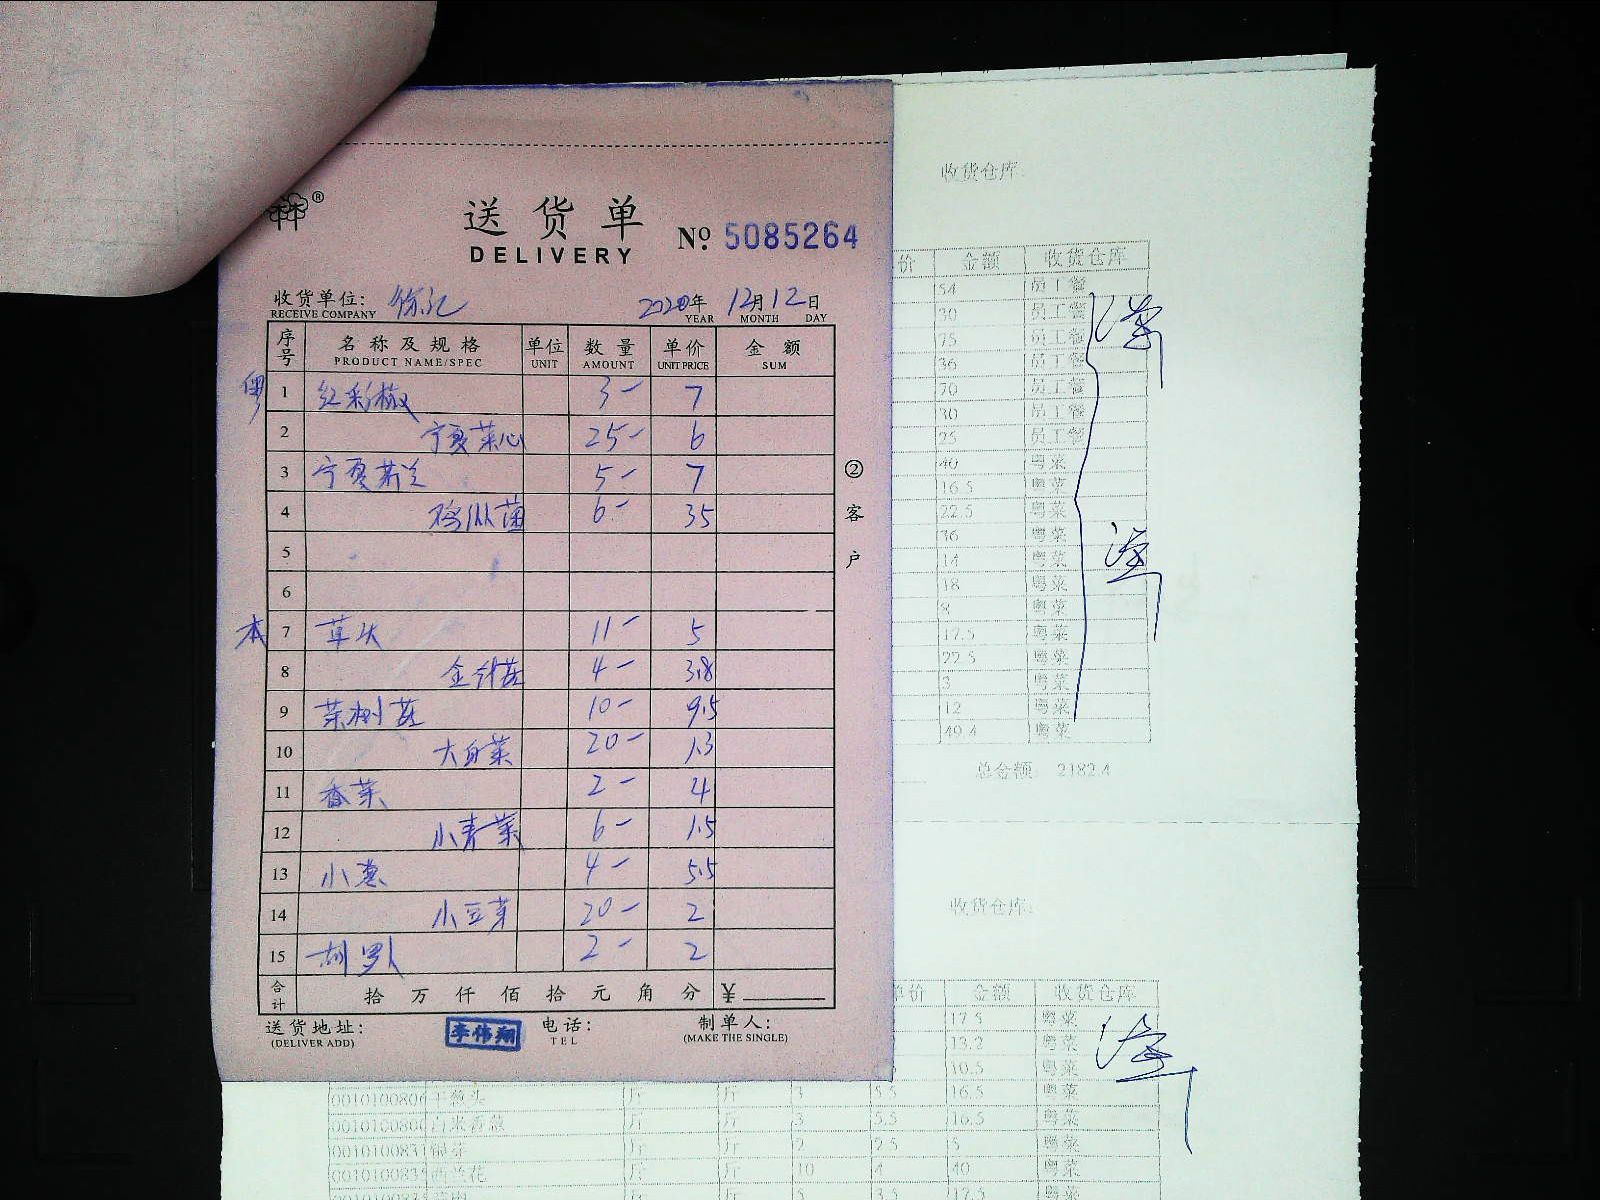 送货单
DELIVERY
No. 5085264
收货单位: 徐记 2020年 12月12日
RECEIVE COMPANY YEAR MONTH DAY
序号 名称及规格 单位 数量 单价 金额
PRODUCT NAME/SPEC UNIT AMOUNT UNIT PRICE SUM
粤 1 红彩椒 3- 7
2 宁夏菜心 25- 6
3 宁夏芥兰 5- 7
4 鸡枞菌 6- 35
5
6
本 7 草头 11- 5
8 金针菇 4- 3.8
9 茶树菇 10- 9.5
10 大白菜 20- 1.3
11 香菜 2- 4
12 小青菜 6- 1.5
13 小葱 4- 5.5
14 小豆芽 20- 2
15 胡罗卜 2- 2
合计 拾万仟佰拾元角分 ¥
送货地址: 李伟翔 电话: 制单人:
(DELIVER ADD) TEL (MAKE THE SINGLE)
②客户
收货仓库:
价 金额 收货仓库
54 员工餐
30 员工餐
75 员工餐
36 员工餐
70 员工餐
30 员工餐
25 员工餐
40 粤菜
16.5 粤菜
22.5 粤菜
36 粤菜
14 粤菜
18 粤菜
8 粤菜
17.5 粤菜
22.5 粤菜
3 粤菜
12 粤菜
49.4 粤菜
总金额: 2182.4
收货仓库:
单价 金额 收货仓库
17.5 粤菜
13.2 粤菜
10.5 粤菜
斤 斤 3 5.5 16.5 粤菜
斤 斤 3 5.5 16.5 粤菜
银芽 斤 斤 2 2.5 5 粤菜
西兰花 斤 斤 10 4 40 粤菜
斤 斤 5 3.5 17.5 粤菜